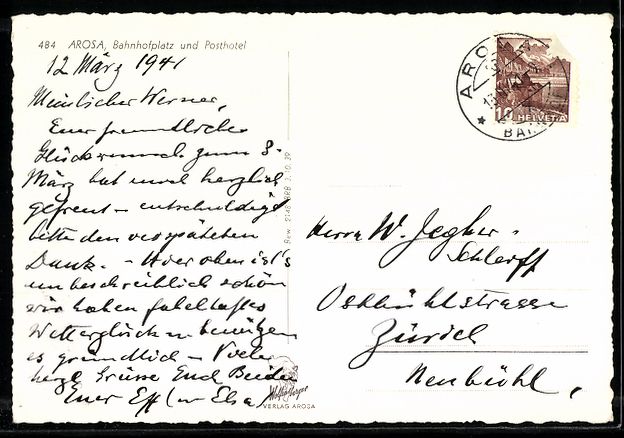 484 AROSA, Bahnhofplatz und Posthotel
12 März 1941
Werner,
Euer freundlicher
Glückwunsch zum 8.
März hat mich herzlich
gefreut – entschuldigt
bitte den verspäteten
Dank. – Hier oben ist's
unbeschreiblich schön
wir haben fabelhaftes
Wetterglück u. benützen
es gründlich – Viele
herzl Grüsse Euch Beiden
Euer Eff (u Elsa)
Bew. 2148 BRB 3.10.39
VERLAG AROSA
AROSA
HELVETIA
10
Herrn W. Jegher-
Schlerff
Ostbühlstrasse
Zürich
Neubühl,